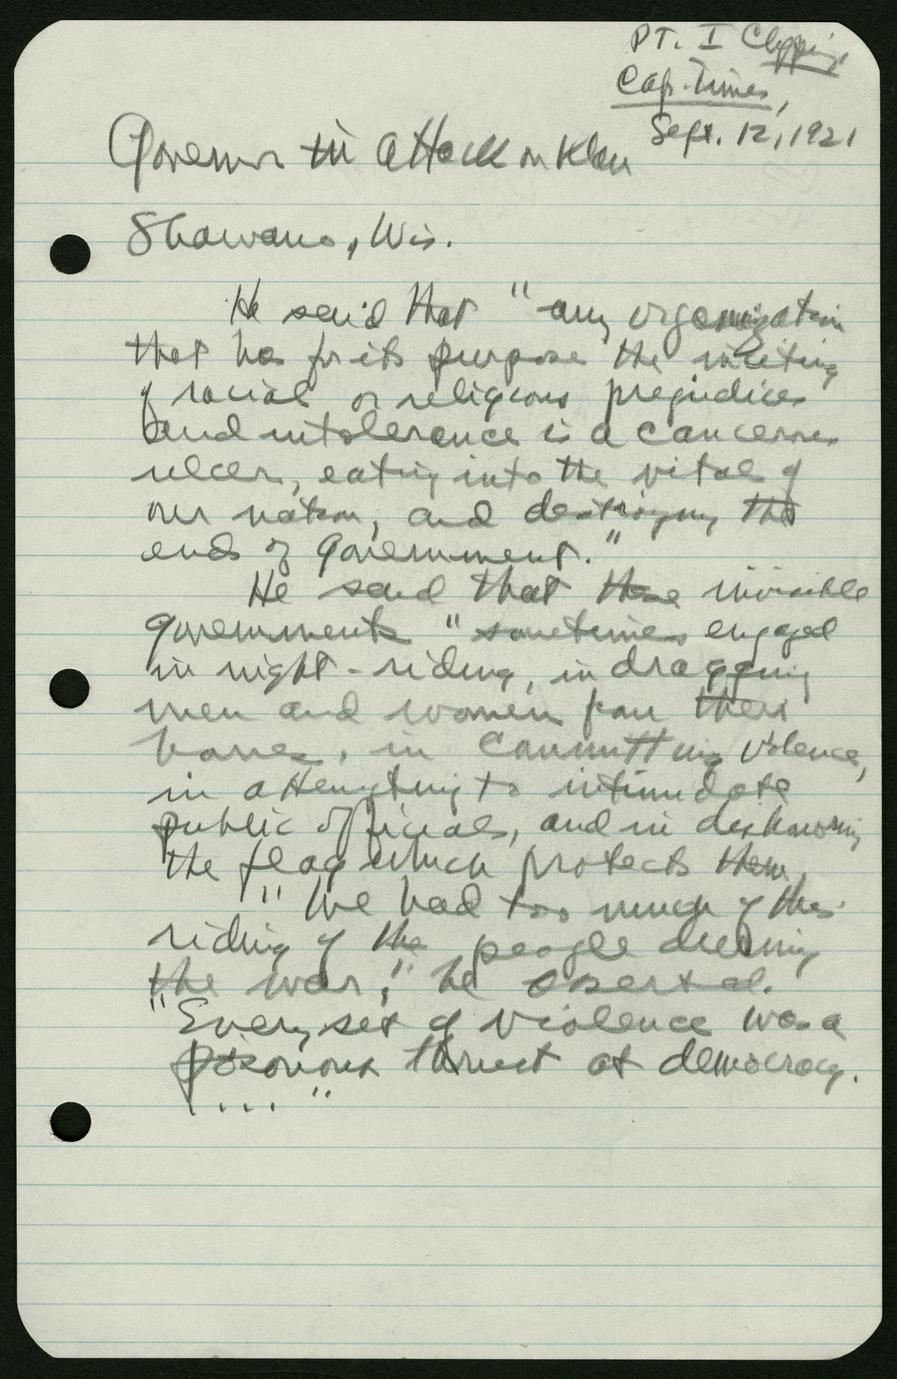 PT. I Clipping
Cap. Times,
Sept. 12, 1921
Governor in attack on Klan
Shawano, Wis.
He said that "any organization
that has for its purpose the inciting
of racial or religious prejudices
and intolerance is a cancerous
ulcer, eating into the vitals of
our nation, and destroying the
ends of government."
He said that these invisible
governments "sometimes engaged
in night-riding, in dragging
men and women from their
homes, in committing violence,
in attempting to intimidate
public officials, and in dishonoring
the flag which protects them.
"We had too much of this
riding of the people during
the war," he asserted.
"Every set of violence was a
poisonous thrust at democracy.
. . . . "